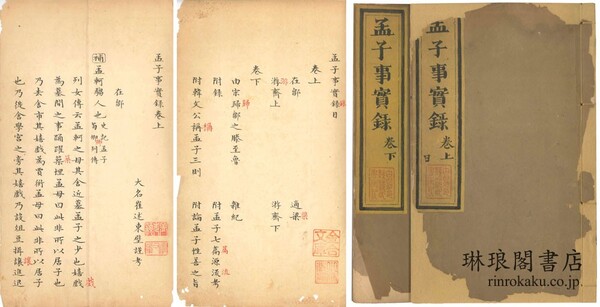 孟子事實錄
卷上
目
孟子事實錄
卷下
孟子事實錄目
卷上
在鄒 適梁
游齊上 游齊下
卷下
由宋歸鄒之滕至魯
附錄 雜紀
附孟子七篇源流考
附韓文公稱孟子三則 附論孟子性善之旨
孟子事實錄卷上
大名崔述東壁謹考
在鄒
補 孟軻騶人也 史記孟子荀卿列傳
列女傳云孟軻之母其舍近墓孟子之少也嬉戲
為墓間之事踊躍築埋孟母曰此非所以居子也
乃去舍市其嬉戲為賈衒孟母曰此非所以居子
也乃徙舍學宮之旁其嬉戲乃設俎豆揖讓進退
琳琅閣書店
rinrokaku.co.jp